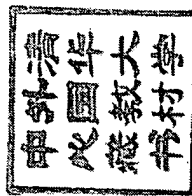 清华大学
外国教材
中心藏书